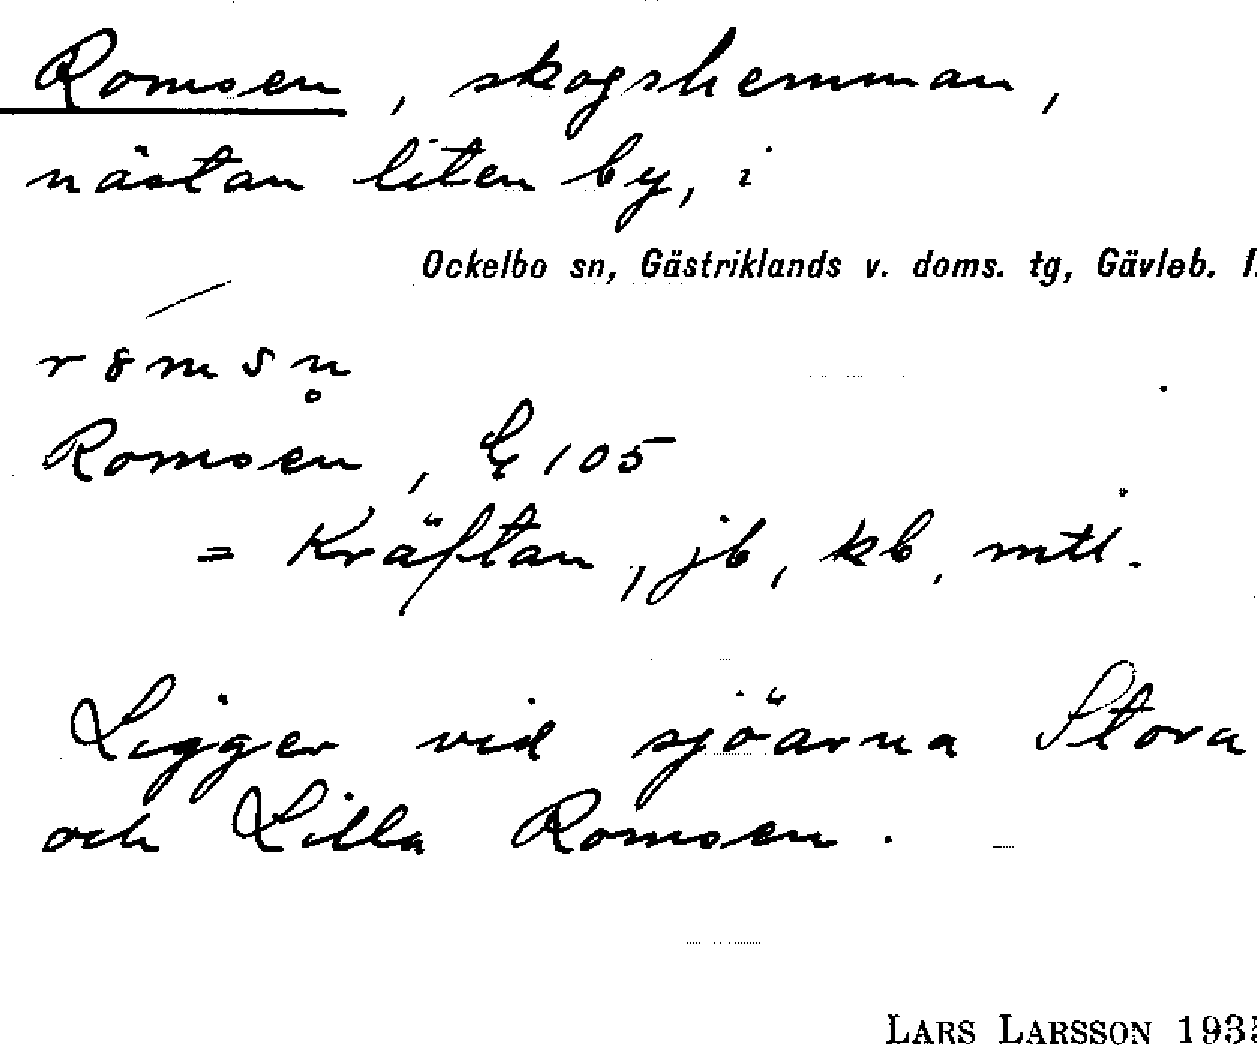 Romsen, skogshemman,
nästan liten by, i
Ockelbo sn, Gästriklands v. doms. tg, Gävleb. l.
Romsen, 105
= Kräftan, jb, kb, mtl.
Ligger vid sjöarna Stora
och Lilla Romsen.
LARS LARSSON 193